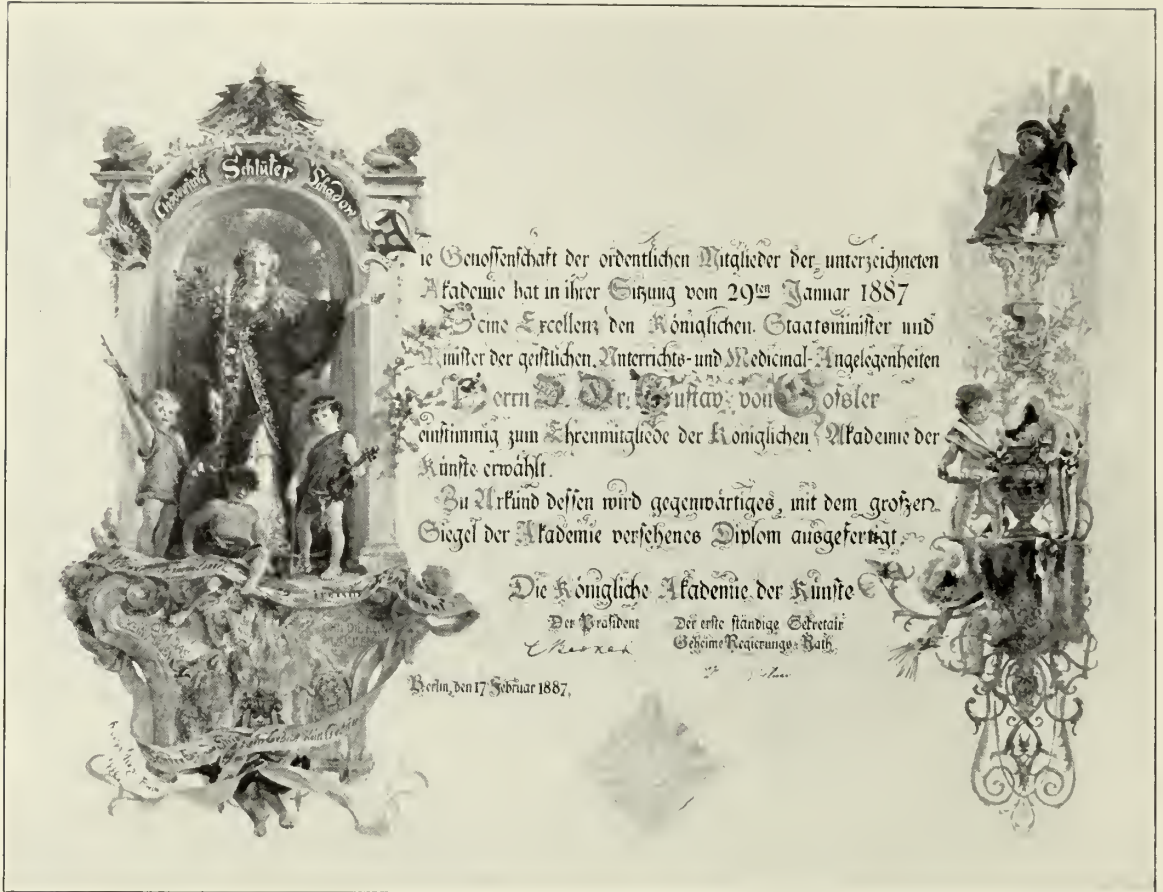 Chodowiecki Schlüter Schadow
Die Genossenschaft der ordentlichen Mitglieder der unterzeichneten
Akademie hat in ihrer Sitzung vom 29ten Januar 1887
Seine Excellenz den Königlichen Staatsminister und
Minister der geistlichen, Unterrichts- und Medicinal-Angelegenheiten
Herrn D. Dr. Gustav von Gossler
einstimmig zum Ehrenmitgliede der Königlichen Akademie der
Künste erwählt.
Zu Urkund dessen wird gegenwärtiges, mit dem großen
Siegel der Akademie versehenes Diplom ausgefertigt.
Die Königliche Akademie der Künste
Der Präsident Der erste ständige Sekretair
Geheime Regierungs-Rath
C Becker
Berlin, den 17 Februar 1887.